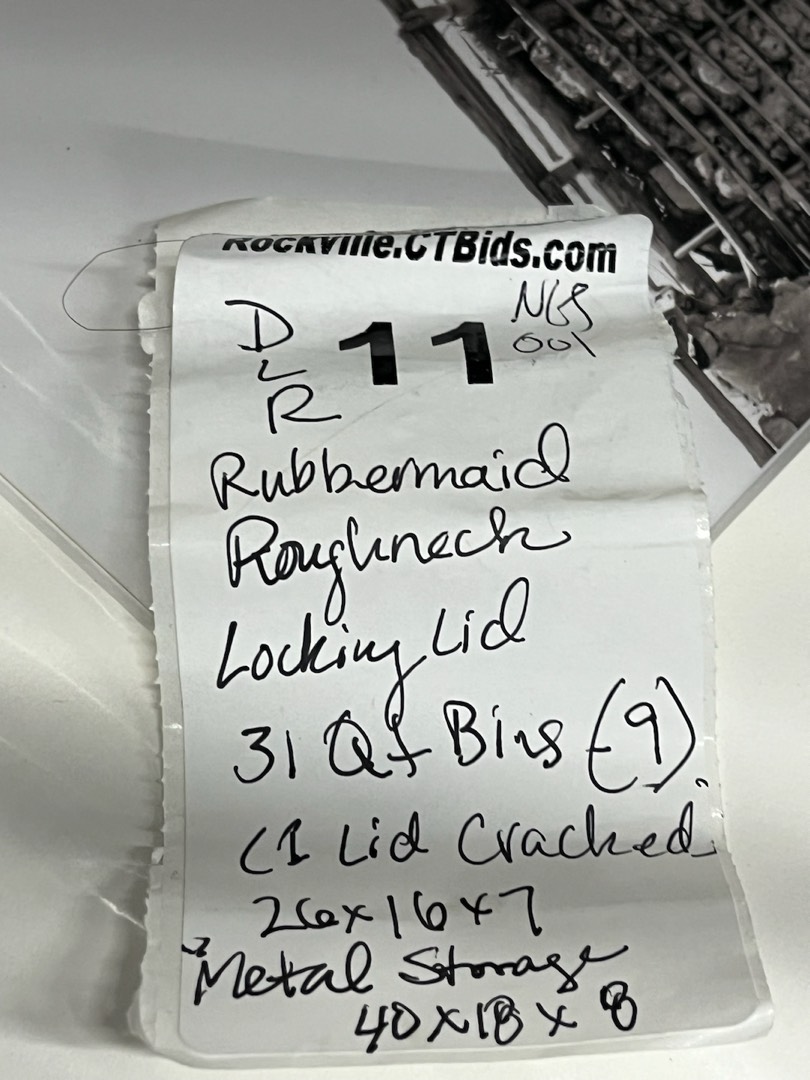 Rockville.CTBids.com
DLR 11 NGS 001
Rubbermaid
Roughneck
Locking Lid
31 Qt Bins (9)
(1 Lid Cracked
26x16x7
Metal Storage
40x18x8